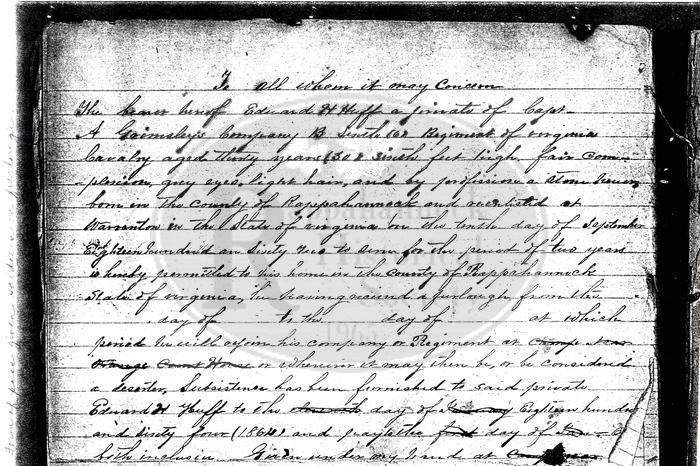 To all whom it may Concern
The bearer hereof Edward H Huff a private of Capt-
A Grimsley's Company B Sixth (6) Regiment of virginia
Cavalry aged thirty years (30) sixth feet high, fair com-
-plexion, grey eyes, light hair, and by profession a Stone
born in the county of Rappahannock and reenlisted at
Warrenton in the State of virginia on the tenth day of September
Eighteen hundred an Sixty two to serve for the period of two years
is hereby permitted to his home in the County of Rappahannock
State of virginia, he having received a furlough from the
day of to the day of at which
period he will rejoin his company or Regiment at Camp near
Orange Court House or wherever it may then be, or be considered
a deserter, Subsistence has been furnished to said private
Edward H Huff to the day of Eighteen hundred
and Sixty four (1864) and pay to the first day of
both inclusive. Given under my hand at
Rappahannock
Historical
Society
1965